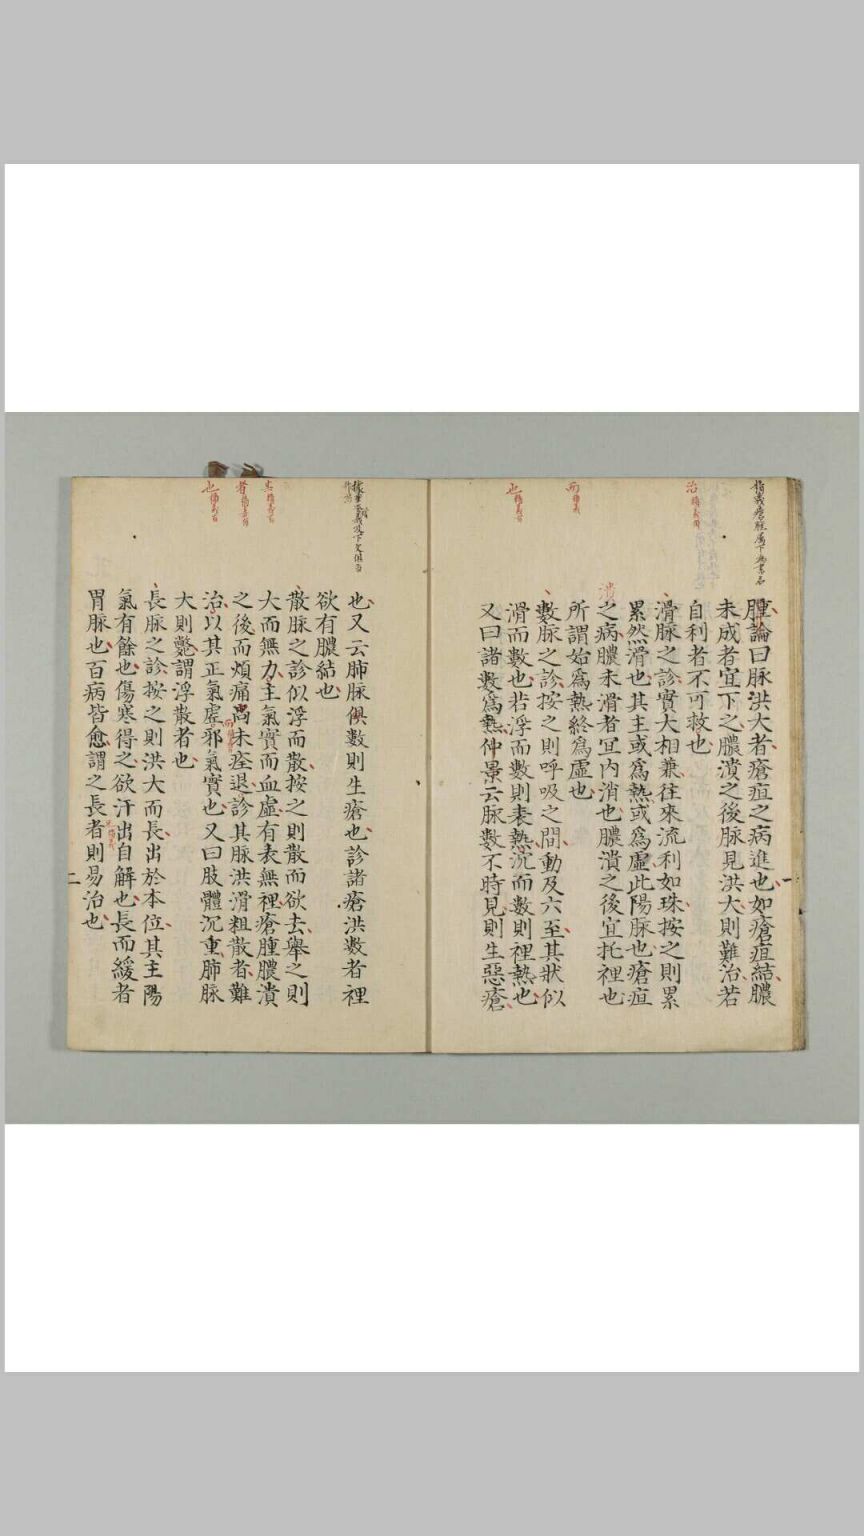 腫論曰脉洪大者瘡疽之病進也如瘡疽結膿
未成者宜下之膿潰之後脉見洪大則難治若
自利者不可救也
滑脉之診實大相兼往來流利如珠按之則累
累然滑也其主或爲熱或爲虛此陽脉也瘡疽
之病膿未滑者冝内消也膿潰之後宜托裡也
所謂始爲熱終爲虛也
數脉之診按之則呼吸之間動及六至其狀似
滑而數也若浮而數則表熱沉而數則裡熱也
又曰諸數爲熱仲景云脉數不時見則生惡瘡
也又云肺脉俱數則生瘡也診諸瘡洪數者裡
欲有膿結也
散脉之診似浮而散按之則散而欲去舉之則
大而無力主氣實而血虛有表無裡瘡腫膿潰
之後而煩痛尚未痊退診其脉洪滑粗散者難
治以其正氣虛邪氣實也又曰肢體沉重肺脉
大則斃謂浮散者也
長脉之診按之則洪大而長出於本位其主陽
氣有餘也傷寒得之欲汗出自解也長而緩者
胃脉也百病皆愈謂之長者則易治也
二
治
而
也
其
者
也